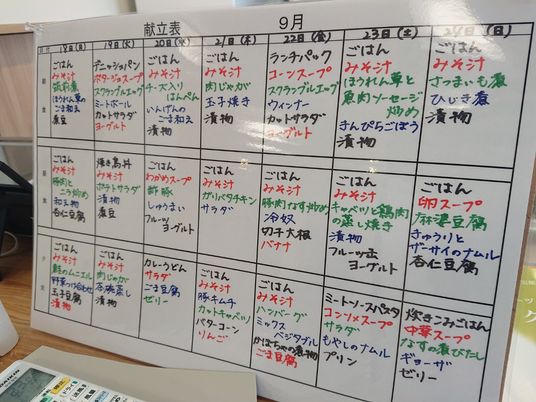 献立表 9月
18日(月) 19日(火) 20日(水) 21日(木) 22日(金) 23日(土) 24日(日)
ごはん
みそ汁
筑前煮
ほうれん草の
ごま和え
煮豆
デニッシュパン
ポタージュスープ
スクランブルエッグ
ミートボール
カットサラダ
ヨーグルト
ごはん
みそ汁
チーズ入り
はんぺん
いんげんの
ごま和え
漬物
ごはん
みそ汁
肉じゃが
玉子焼き
漬物
ランチパック
コーンスープ
スクランブルエッグ
ウィンナー
カットサラダ
ヨーグルト
ごはん
みそ汁
ほうれん草と
魚肉ソーセージ
炒め
きんぴらごぼう
漬物
ごはん
みそ汁
さつまいも煮
ひじき煮
漬物
ごはん
みそ汁
豚肉と
ニラ炒め
和え物
杏仁豆腐
焼き鳥丼
みそ汁
ポテトサラダ
漬物
煮豆
ごはん
わかめスープ
酢豚
しゅうまい
フルーツ
ヨーグルト
ごはん
みそ汁
ガリバタチキン
サラダ
ごはん
みそ汁
豚肉なす炒め
冷奴
切干大根
バナナ
ごはん
みそ汁
キャベツと鶏肉
の蒸し焼き
漬物
フルーツ缶
ヨーグルト
ごはん
卵スープ
麻婆豆腐
きゅうりと
ザーサイのナムル
杏仁豆腐
ごはん
みそ汁
鮭のムニエル
野菜つけ合わせ
玉子豆腐
漬物
ごはん
みそ汁
肉じゃが
漬物
カレーうどん
サラダ
ごま豆腐
ゼリー
ごはん
みそ汁
豚キムチ
カットキャベツ
バターコーン
りんご
ごはん
みそ汁
ハンバーグ
ミックス
ベジタブル
かぼちゃの煮物
ごま豆腐
ミートソースパスタ
コンソメスープ
サラダ
もやしのナムル
プリン
炊きこみごはん
中華スープ
なすの煮びたし
ギョーザ
ゼリー